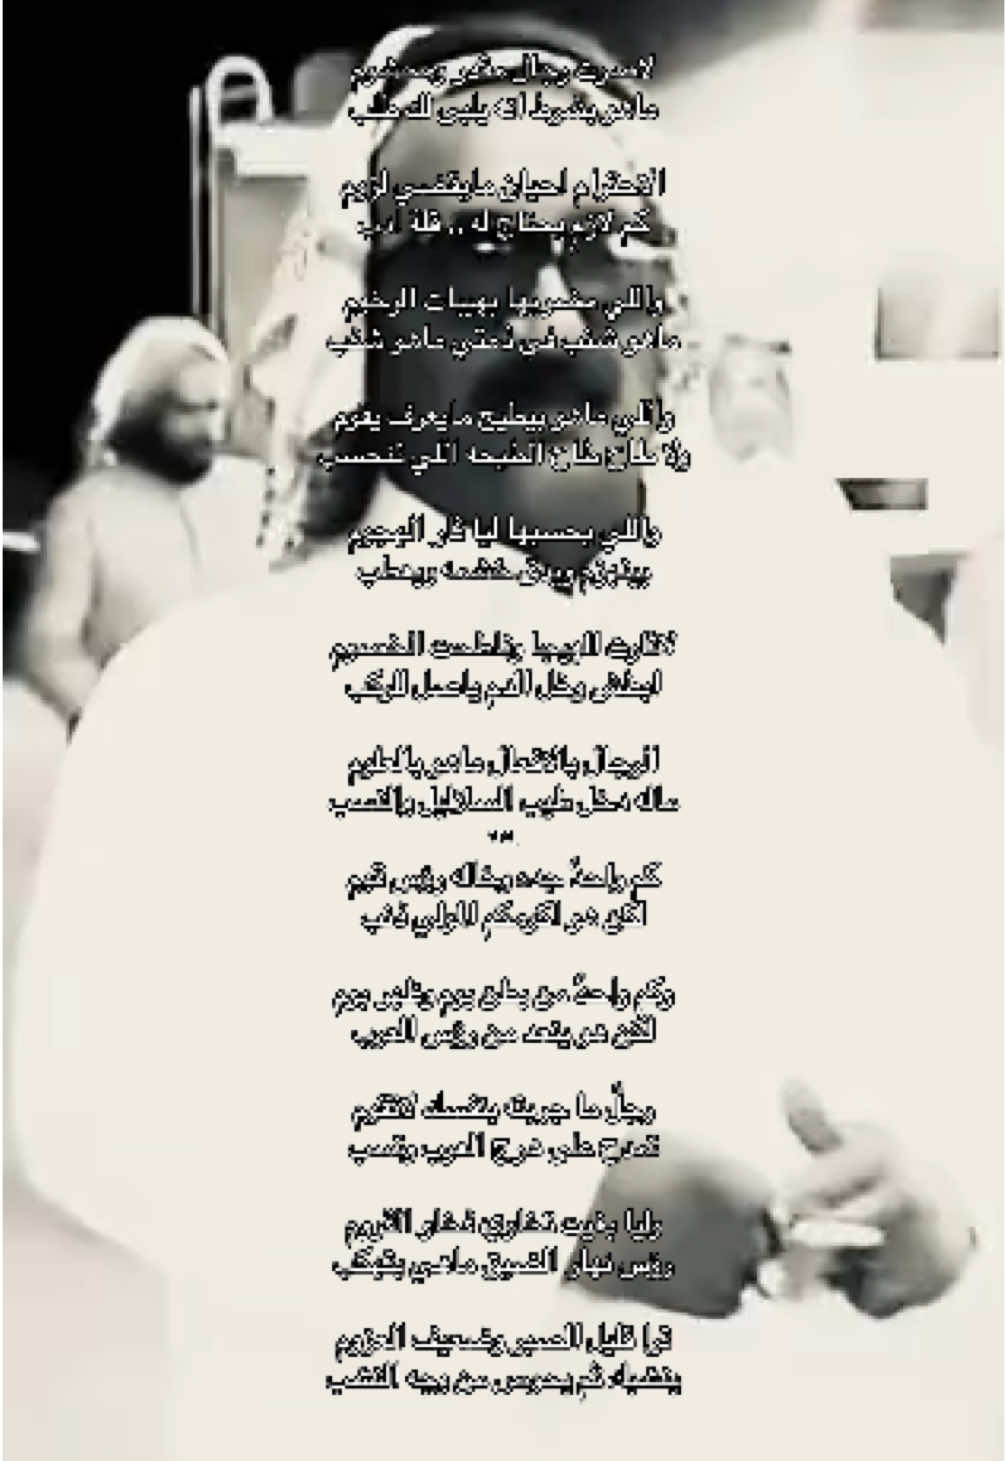 لاصرت رجال مقدر ومحشوم
ماهو بشرط انه يلبى لك طلب
الاحترام احيان مايقضي لزوم
كم لازم يحتاج له .. قلة ادب
واللي مضريها بهيبات الرخوم
ماهو شنب في ذمتي ماهو شنب
واللي ماهو بيطيح مايعرف يقوم
ولا طاح طاح الطيحه اللي تنحسب
واللي يحسبها ليا ثار الهجوم
بينهزم ويدق خشمه وينعطب
لاثارت الهيجا وتلاطمت الخصوم
ابطش وخل الدم ياصل للركب
الرجال بالافعال ماهو بالعلوم
ماله دخل طيب السلايل والنسب
..
كم واحدٌ جده وخاله رؤس قوم
لكن هو اكرمكم المولي ذنب
وكم واحدٌ من بطن بوم وظهر بوم
لكن هو ينعد من رؤس العرب
رجلٍ ما جربته بنفسك لاتقوم
تمدح على هرج العرب وتسب
وليا بغيت تخاوي فخاو القروم
رؤس نهار الضيق ماهي بتركب
ترا قليل الصبر وضعيف العزوم
ينشباه ثم يحوس من وجه النشب